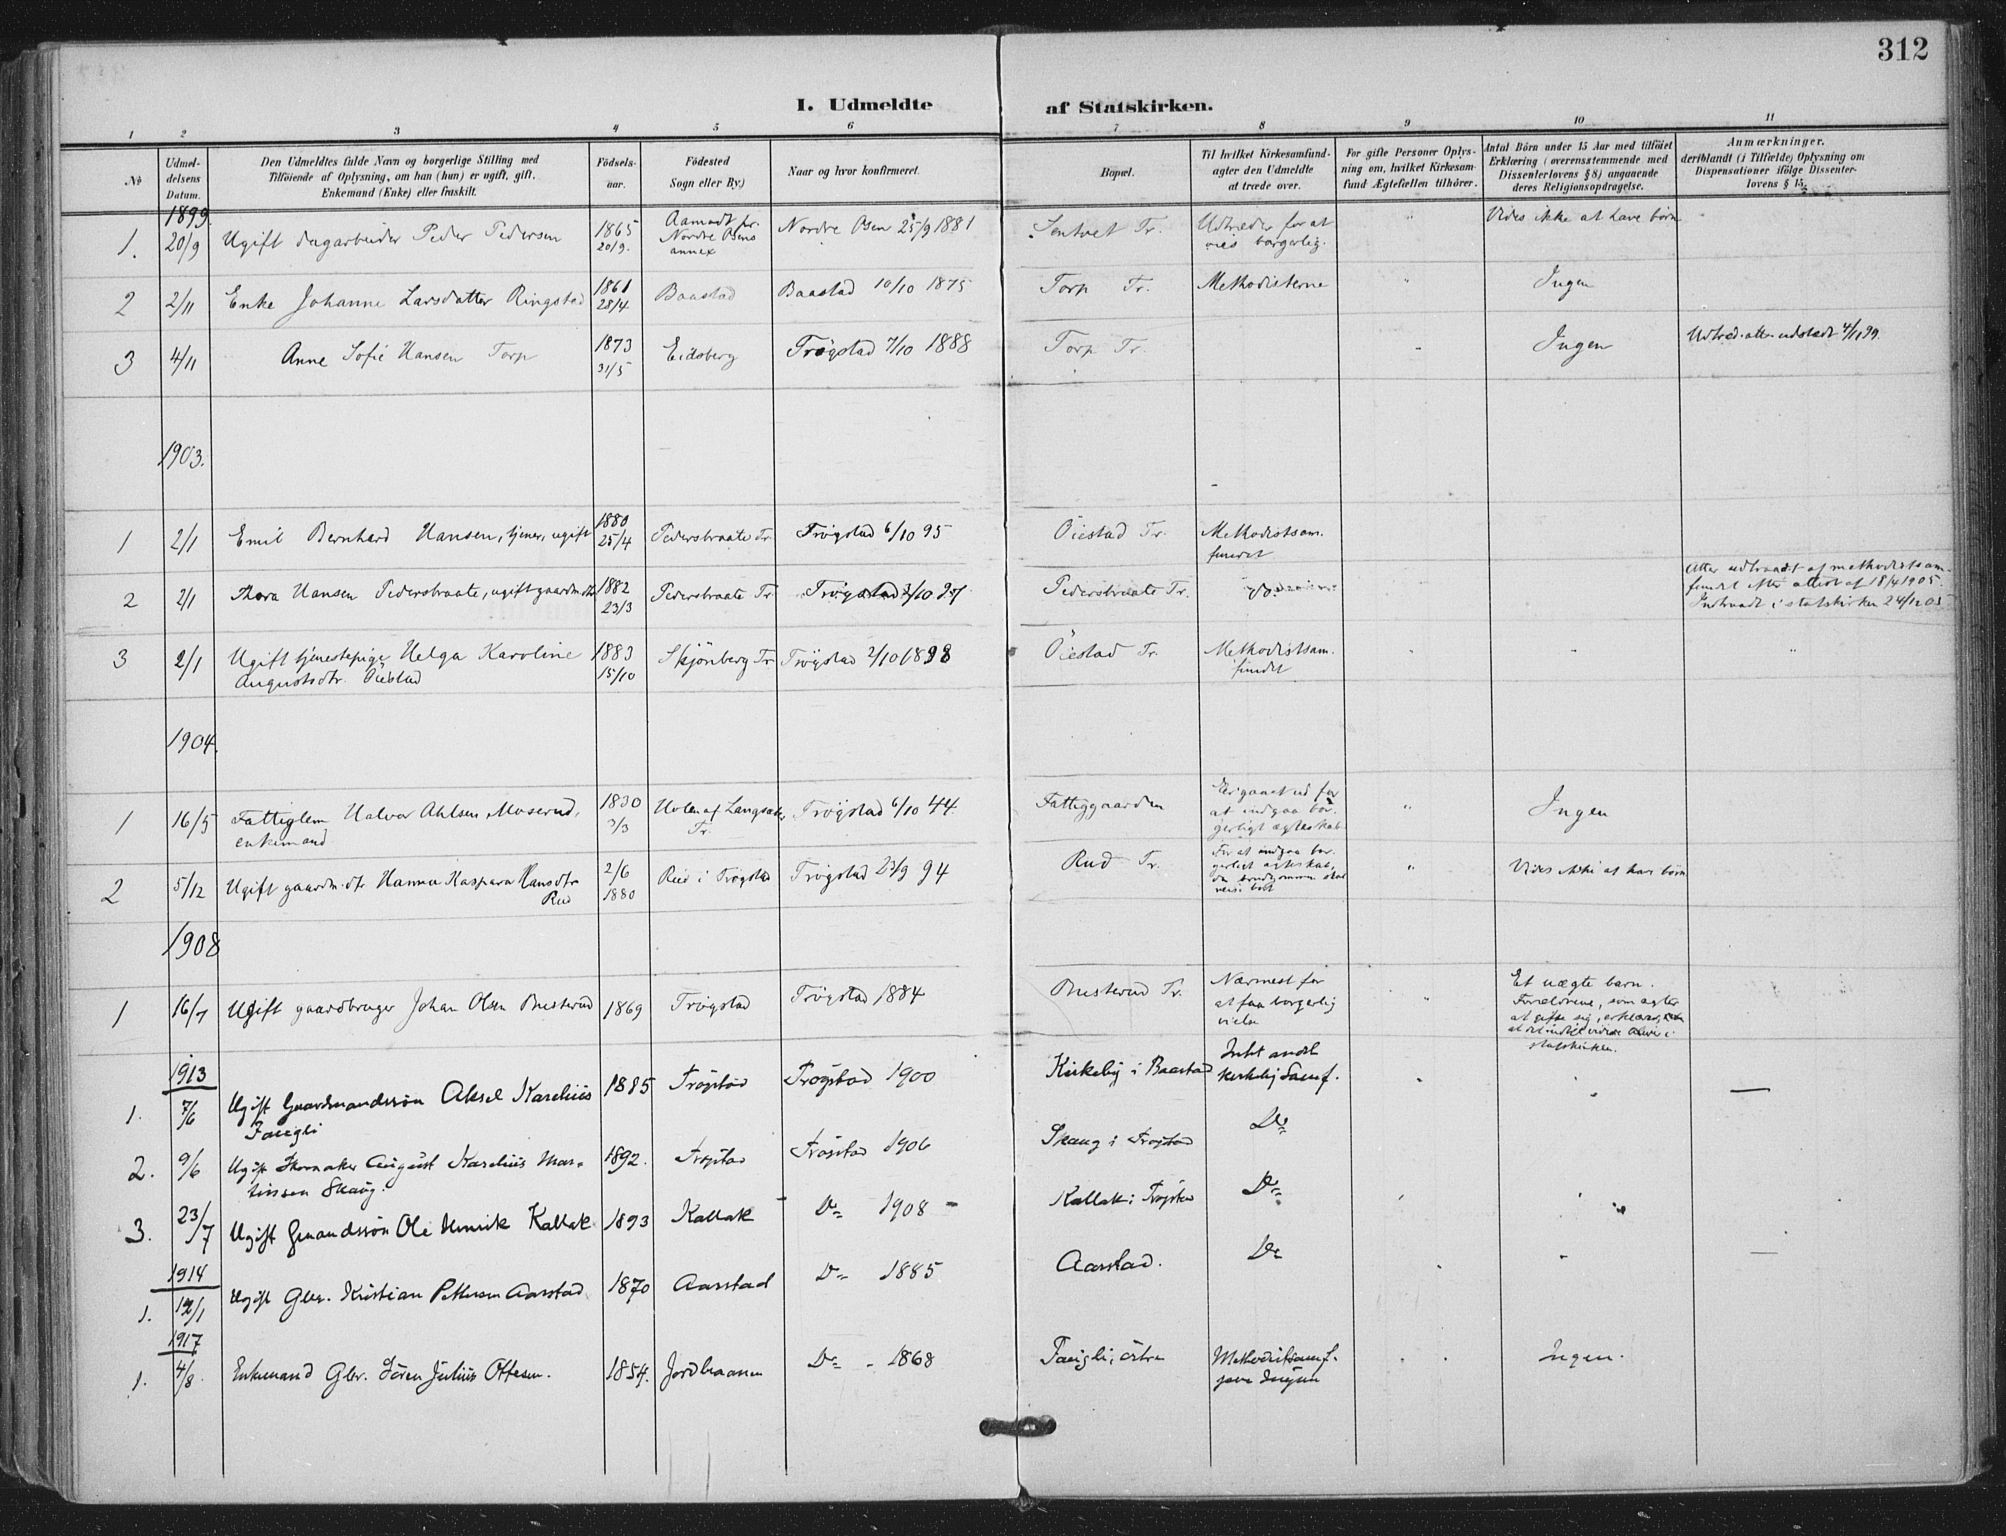 312
I. Udmeldte af Statskirken.
1 2 3 4 5 6 7 8 9 10 11
No
Udmel-
delsens
Datum.
Den Udmeldtes fulde Navn og borgerlige Stilling med
Tilföiende af Oplysning, om han (hun) er ugift, gift,
Enkemand (Enke) eller fraskilt.
Födsels-
aar.
Födested
Sogn eller By.)
Naar og hvor konfirmeret.
Bopæl.
Til hvilket Kirkesamfund-
agter den Udmeldte
at træde over.
For gifte Personer Oplys-
ning om, hvilket Kirkesam-
fund Ægtefællen tilhörer.
Antal Börn under 15 Aar med tilföiet
Erklæring (overensstemmende med
Dissenterlovens § 8) angaaende
deres Religionsopdragelse.
Anmærkninger,
deriblandt (i Tilfælde) Oplysning om
Dispensationer ifölge Dissenter-
lovens § 15.
1899.
1. 20/9 Ugift dagarbeider Peder Pedersen 1865 20/9. Aamodt pr. Nordre Osens annex Nordre Osen 25/9 1881 Tr. Udtræder for at vies borgerlig. " Vides ikke at have börn
2 2/11 Enke Johanne Larsdatter Ringstad 1861 28/4 Baastad Baastad 10/10 1875 Torp Tr. Methodisterne " Ingen
3 4/11 Anne Sofie Hansen Torp 1873 31/5 Eidsberg Trøgstad 7/10 1888 Torp Tr. Ingen Udtræd. atten udstedt 4/11 99.
1903.
1 2/1 Emil Bernhard Hansen, tjener, ugift 1880 25/4 Pedersbraate Tr. Trögstad 6/10 95 Öiestad Tr. Methodistsam-
fundet
2 2/1 Thora Hansen Pedersbraate, ugift gaardm.dtr 1882 23/3 Pedersbraate Tr. Trögstad 3/10 97 Pedersbraate Tr. do. Atter udtraadt af methodistsam-
fundet efter attest af 18/4 1905.
Indtraadt i statskirken 24/12 05
3 2/1 Ugift tjenestepige Helga Karoline
Augustsdtr. Öiestad 1883 15/10 Skjönberg Tr. Trögstad 2/10 1898 Öiestad Tr. Methodistsam-
fundet " " "
1904.
1 16/5 Fattiglem Halvor Ahlsen Moserud,
enkemand 1830 3/3 Tr. Trögstad 6/10 44. Fattiggaarden Er gaaet ud for
at indgaa bor-
gerligt ægteskab " Ingen
2 5/12 Ugift gaardm.dtr Hanna Kaspara Hansdtr
Rud 2/6 1880 Rud i Trögstad Trögstad 23/9 94 Rud Tr. For at indgaa bor-
gerligt ægteskab,
da brudgommen skal
reise bort " Vides ikke at have börn
1908
1 16/7 Ugift gaardbruger Johan Olsen Busterud 1869 Trögstad Trögstad 1884 Busterud Tr. Nærmest for
at faa borgerlig
vielse " Et uægte barn.
Forældrene, som agter
at gifte sig, erklærer,
at det indtil videre bliver i
statskirken.
1913
1. 7/6 Ugift Gaardmandssön Aksel Karelius
Faugli 1885 Trögstad Trögstad 1900 Kirkeby i Baastad Intet andet
kirkelig Samf. —
2. 9/6 Ugift Skomaker August Karelius Mar-
tinsen Skaug. 1892. Trögstad Trögstad 1906 Skaug i Trögstad Do
3. 23/7 Ugift Gmandssön Ole Henrik Kallak 1893 Kallak Do 1908 - Kallak i Trögstad Do
1914
1. 12/1 Ugift Gbr. Kristian Pettersen Aarstad 1870 Aarstad Do 1885 Aarstad. Do —
1917
1. 4/8. Enkemand Gbr. Sören Julius Ottesen. 1854. Jordbraaten Do - 1868 Faugli, östre Methodistsamf. Ingen.